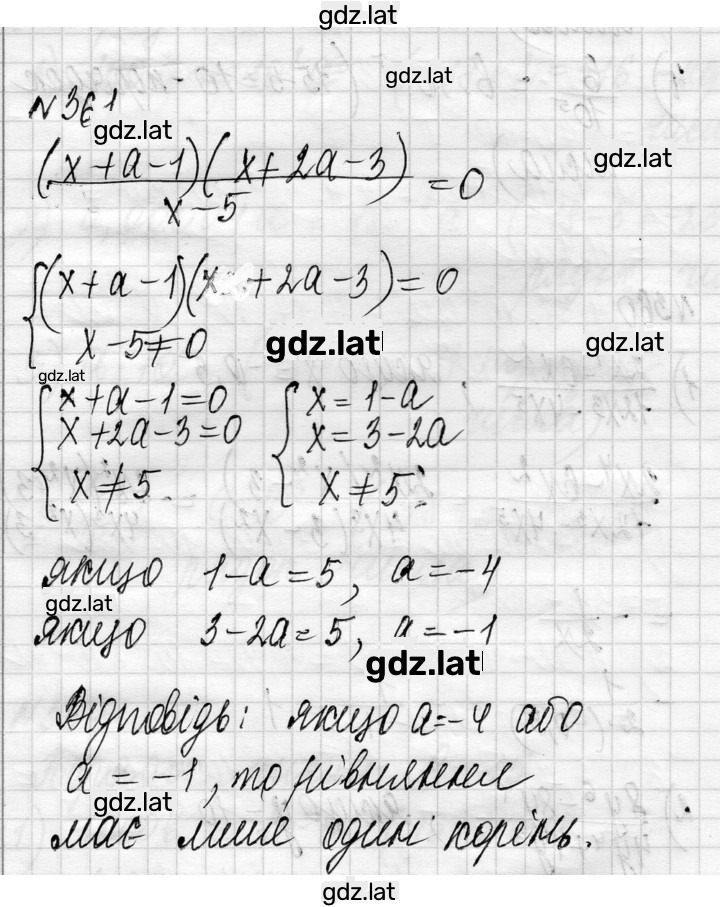 gdz.lat
gdz.lat
N 361
gdz.lat
gdz.lat
(x+a-1)(x+2a-3)
x-5
=0
(x+a-1)(x+2a-3)=0
x-5≠0
gdz.lat
gdz.lat
gdz.lat
x+a-1=0
x+2a-3=0
x≠5
x=1-a
x=3-2a
x≠5
якщо 1-a=5, a=-4
gdz.lat
якщо 3-2a=5, a=-1
gdz.lat
Відповідь: якщо a=-4 або
a=-1, то рівняння
gdz.lat
має лише один корінь.
gdz.lat